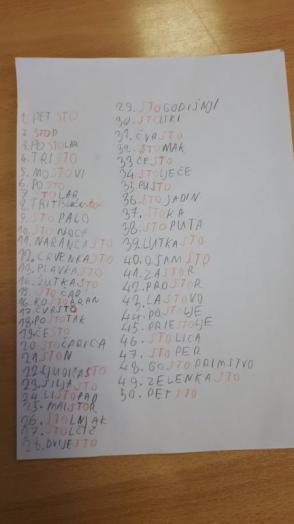 1. PET STO
2. STOP
3. POSTOLAR
4. TRISTO
5. MOSTOVI
6. POSTO
7. STOLAR
8. TRITISUĆESTO
9. STOPALO
10. STONOGA
11. NARANČASTO
12. CRVENKASTO
13. PLAVKASTO
14. ŽUTKASTO
15. STOČAR
16. KOSTOBRAN
17. ČVRSTO
18. POSTOTAK
19. ČESTO
20. STOČARICA
21. STON
22. LJUBIČASTO
23. SILJASTO
24. LISTOPAD
25. MAISTOR
26. STOLNJAK
27. STOLČIĆ
28. DVIJESTO
29. STOGODIŠNJI
30. STOLSKI
31. ČVASTO
32. STOMAK
33. ČESTO
34. STOLJEĆE
35. PUSTO
36. STOJADIN
37. STOKA
38. STO PUTA
39. LUTKASTO
40. OSAMSTO
41. ZASTOR
42. PROSTOR
43. LASTOVO
44. POSTOLJE
45. PRIESTOLJE
46. STOLICA
47. STOPER
48. GOSTOPRIMSTVO
49. ZELENKASTO
50. PETSTO